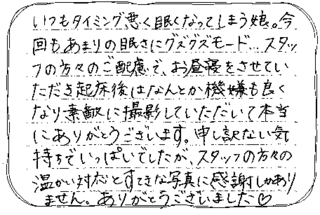 いつもタイミング悪く眠くなってしまう娘。今
回もあまりの眠さにグズグズモード…スタッ
フの方々のご配慮で、お昼寝をさせてい
ただき起床後はなんとか機嫌も良く
なり素敵に撮影していただいて本当
にありがとうございます。申し訳ない気
持ちでいっぱいでしたが、スタッフの方々の
温かい対応とすてきな写真に感謝しかあり
ません。ありがとうございました♡